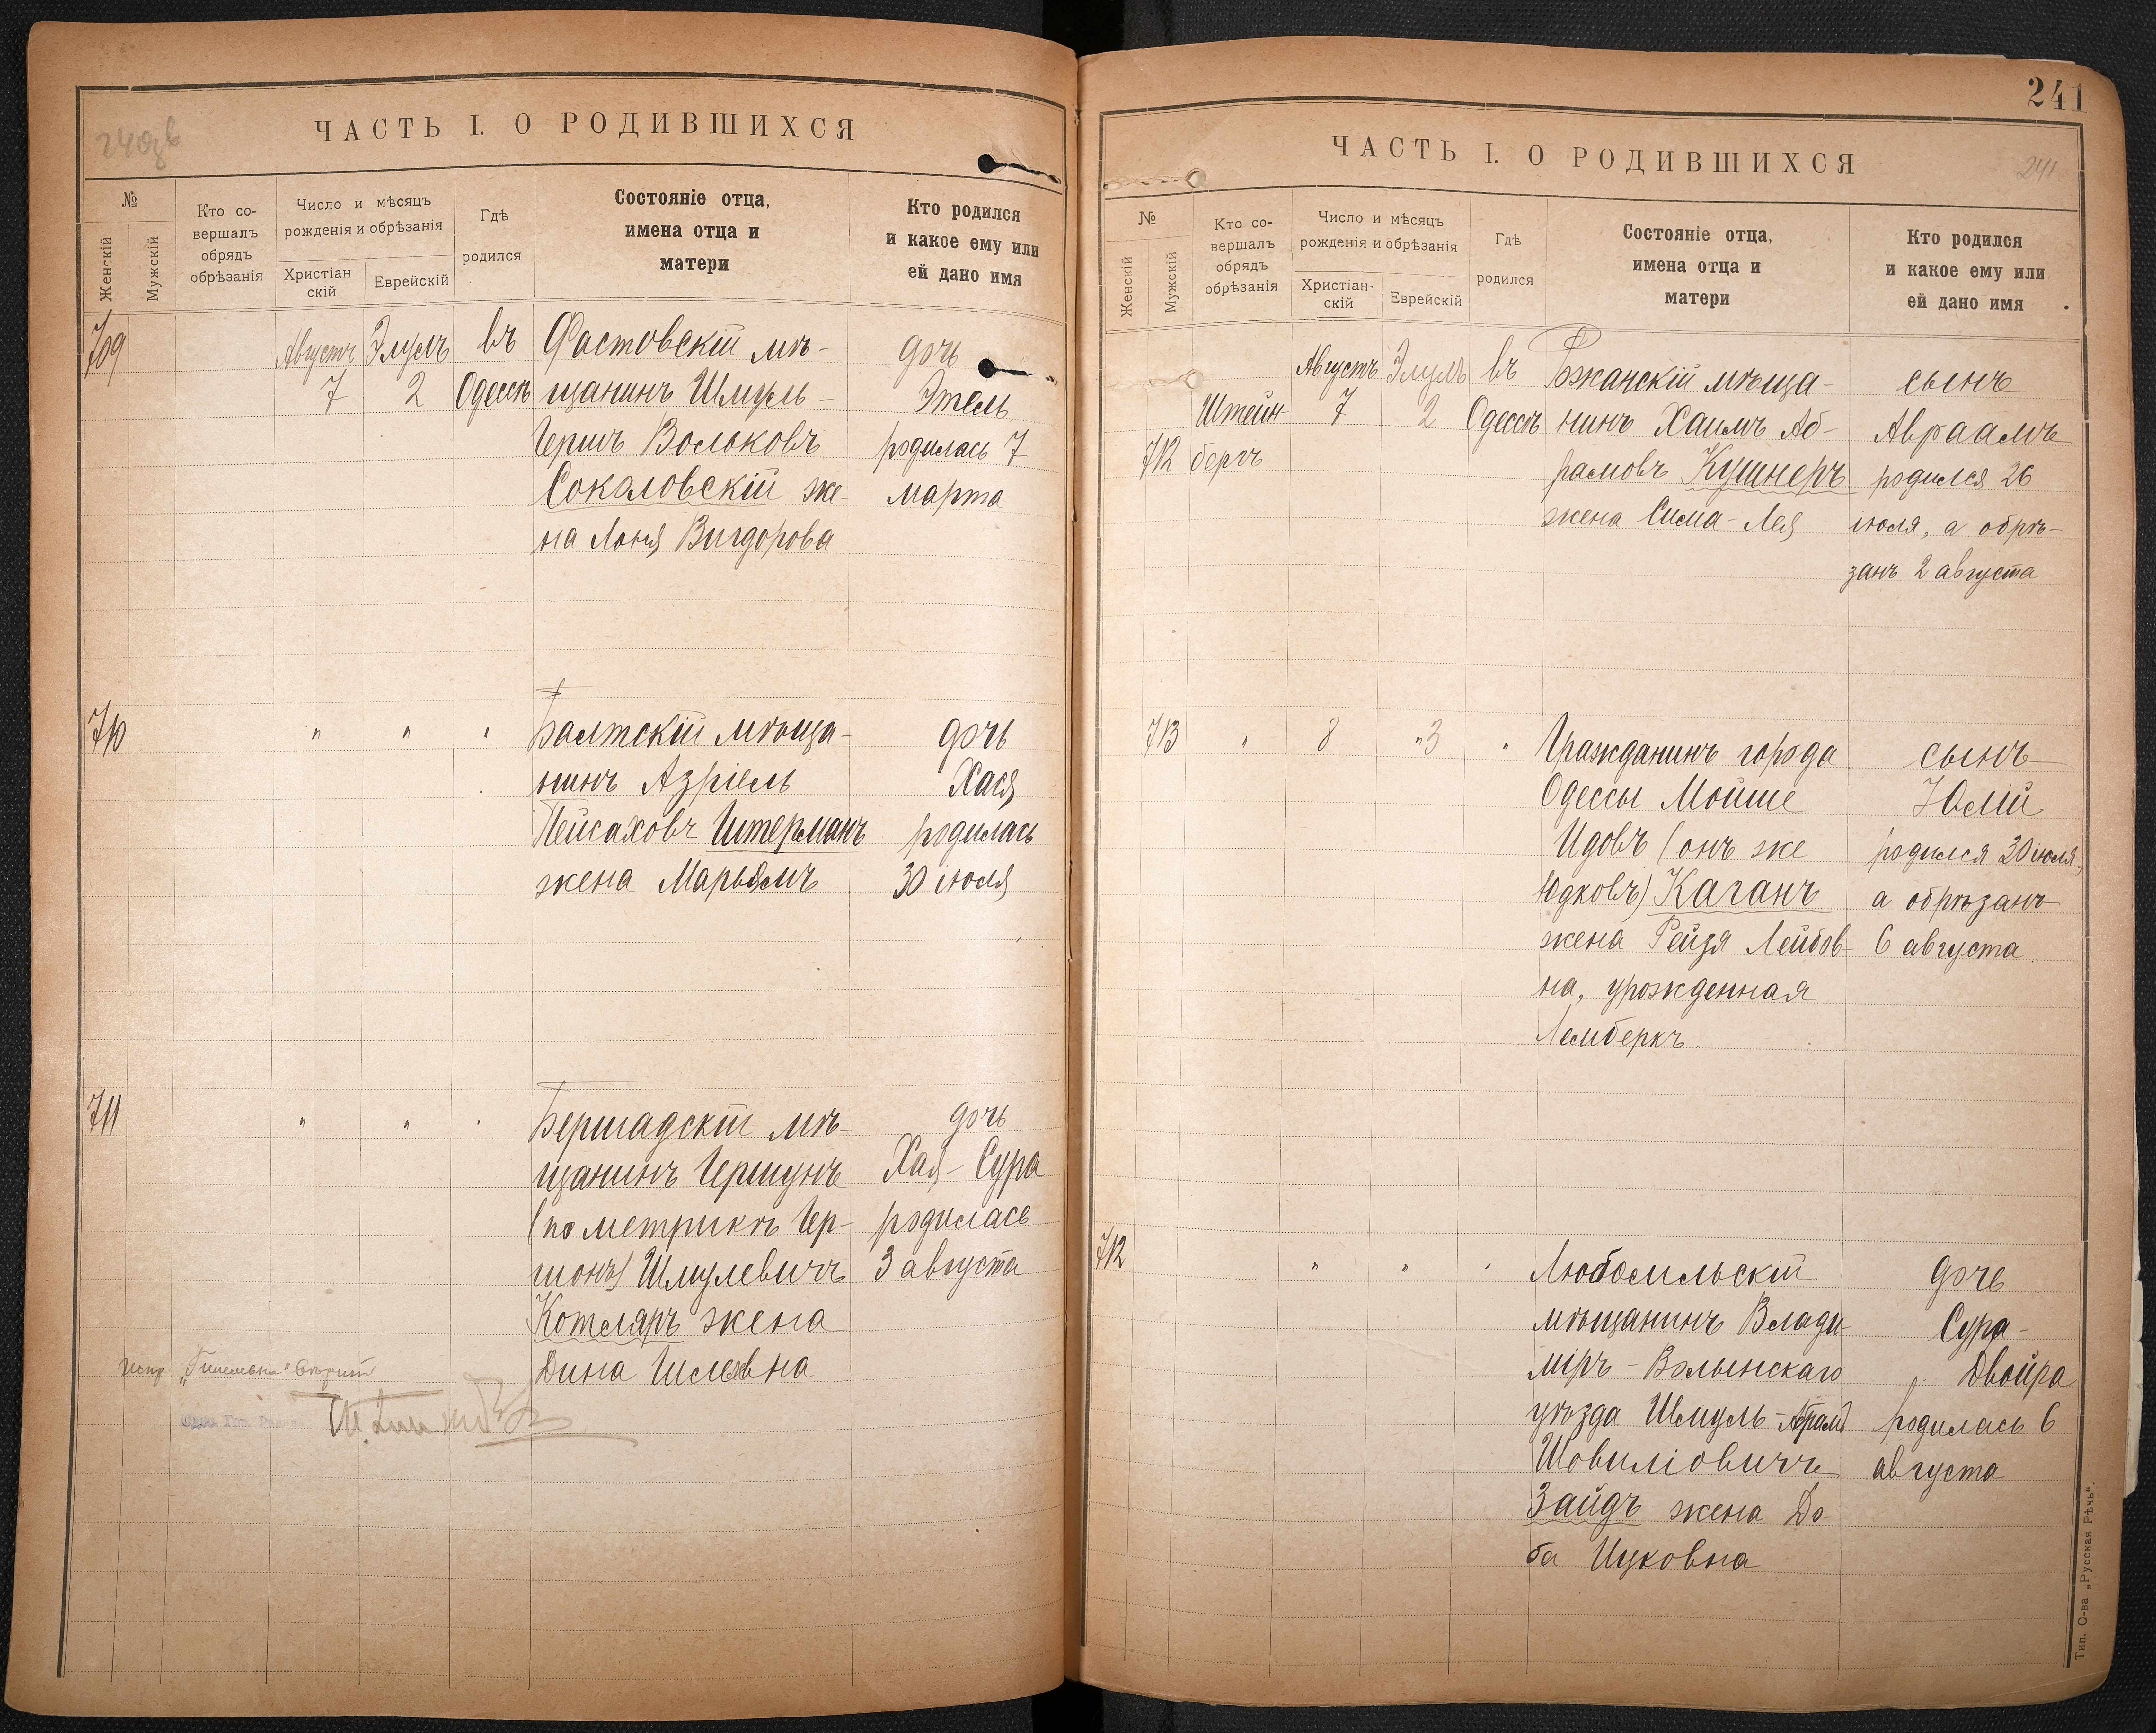 240об
ЧАСТЬ I. О РОДИВШИХСЯ
№
Женскій
Мужскій
Кто со-
вершалъ
обрядъ
обрѣзанія
Число и мѣсяцъ
рожденія и обрѣзанія
Христіан
скій
Еврейскій
Гдѣ
родился
Состояніе отца,
имена отца и
матери
Кто родился
и какое ему или
ей дано имя
709 Августъ Элулъ въ Фастовскій мѣ- дочь
7 2 Одессѣ щанинъ Шмуль- Этель
Гершъ Вольковъ родилась 7
Соколовскій же- марта
на Лоня Вигдорова
710 " " " Балтскій мѣща- дочь
нинъ Азріель Хася
Пейсаховъ Штерманъ родилась
жена Марьямъ 30 іюля
711 " " " Бершадскій мѣ- дочь
щанинъ Гершунъ Хая-Сура
(по метрикѣ Гер- родилась
шонъ) Шмулевичъ 3 августа
Котляръ жена
Дина
241
ЧАСТЬ I. О РОДИВШИХСЯ
241
№
Женскій
Мужскій
Кто со-
вершалъ
обрядъ
обрѣзанія
Число и мѣсяцъ
рожденія и обрѣзанія
Христіан-
скій
Еврейскій
Гдѣ
родился
Состояніе отца,
имена отца и
матери
Кто родился
и какое ему или
ей дано имя
Августъ Элулъ въ мѣща- сынъ
Штейн 7 2 Одессѣ нинъ Хаимъ Аб- Авраамъ
712 бергъ рамовъ Кушнеръ родился 26
жена Сима-Лея іюля, а обрѣ-
занъ 2 августа
713 " 8 "3 " Гражданинъ города сынъ
Одессы Мойше Юлій
Идовъ (онъ же родился 30 іюля,
Юдковъ) Каганъ а обрѣзанъ
жена Рейзя Лейбов- 6 августа
на, урожденная
Лемберкъ.
712 " " " Любомльскій дочь
мѣщанинъ Влади- Сура-
міръ-Волынскаго Двойра
уѣзда Шмуль-Абрамъ родилась 6
Шовиліовичъ августа
Зайдъ жена До-
ба Ицковна
Тип. О-ва „Русская Рѣчь".